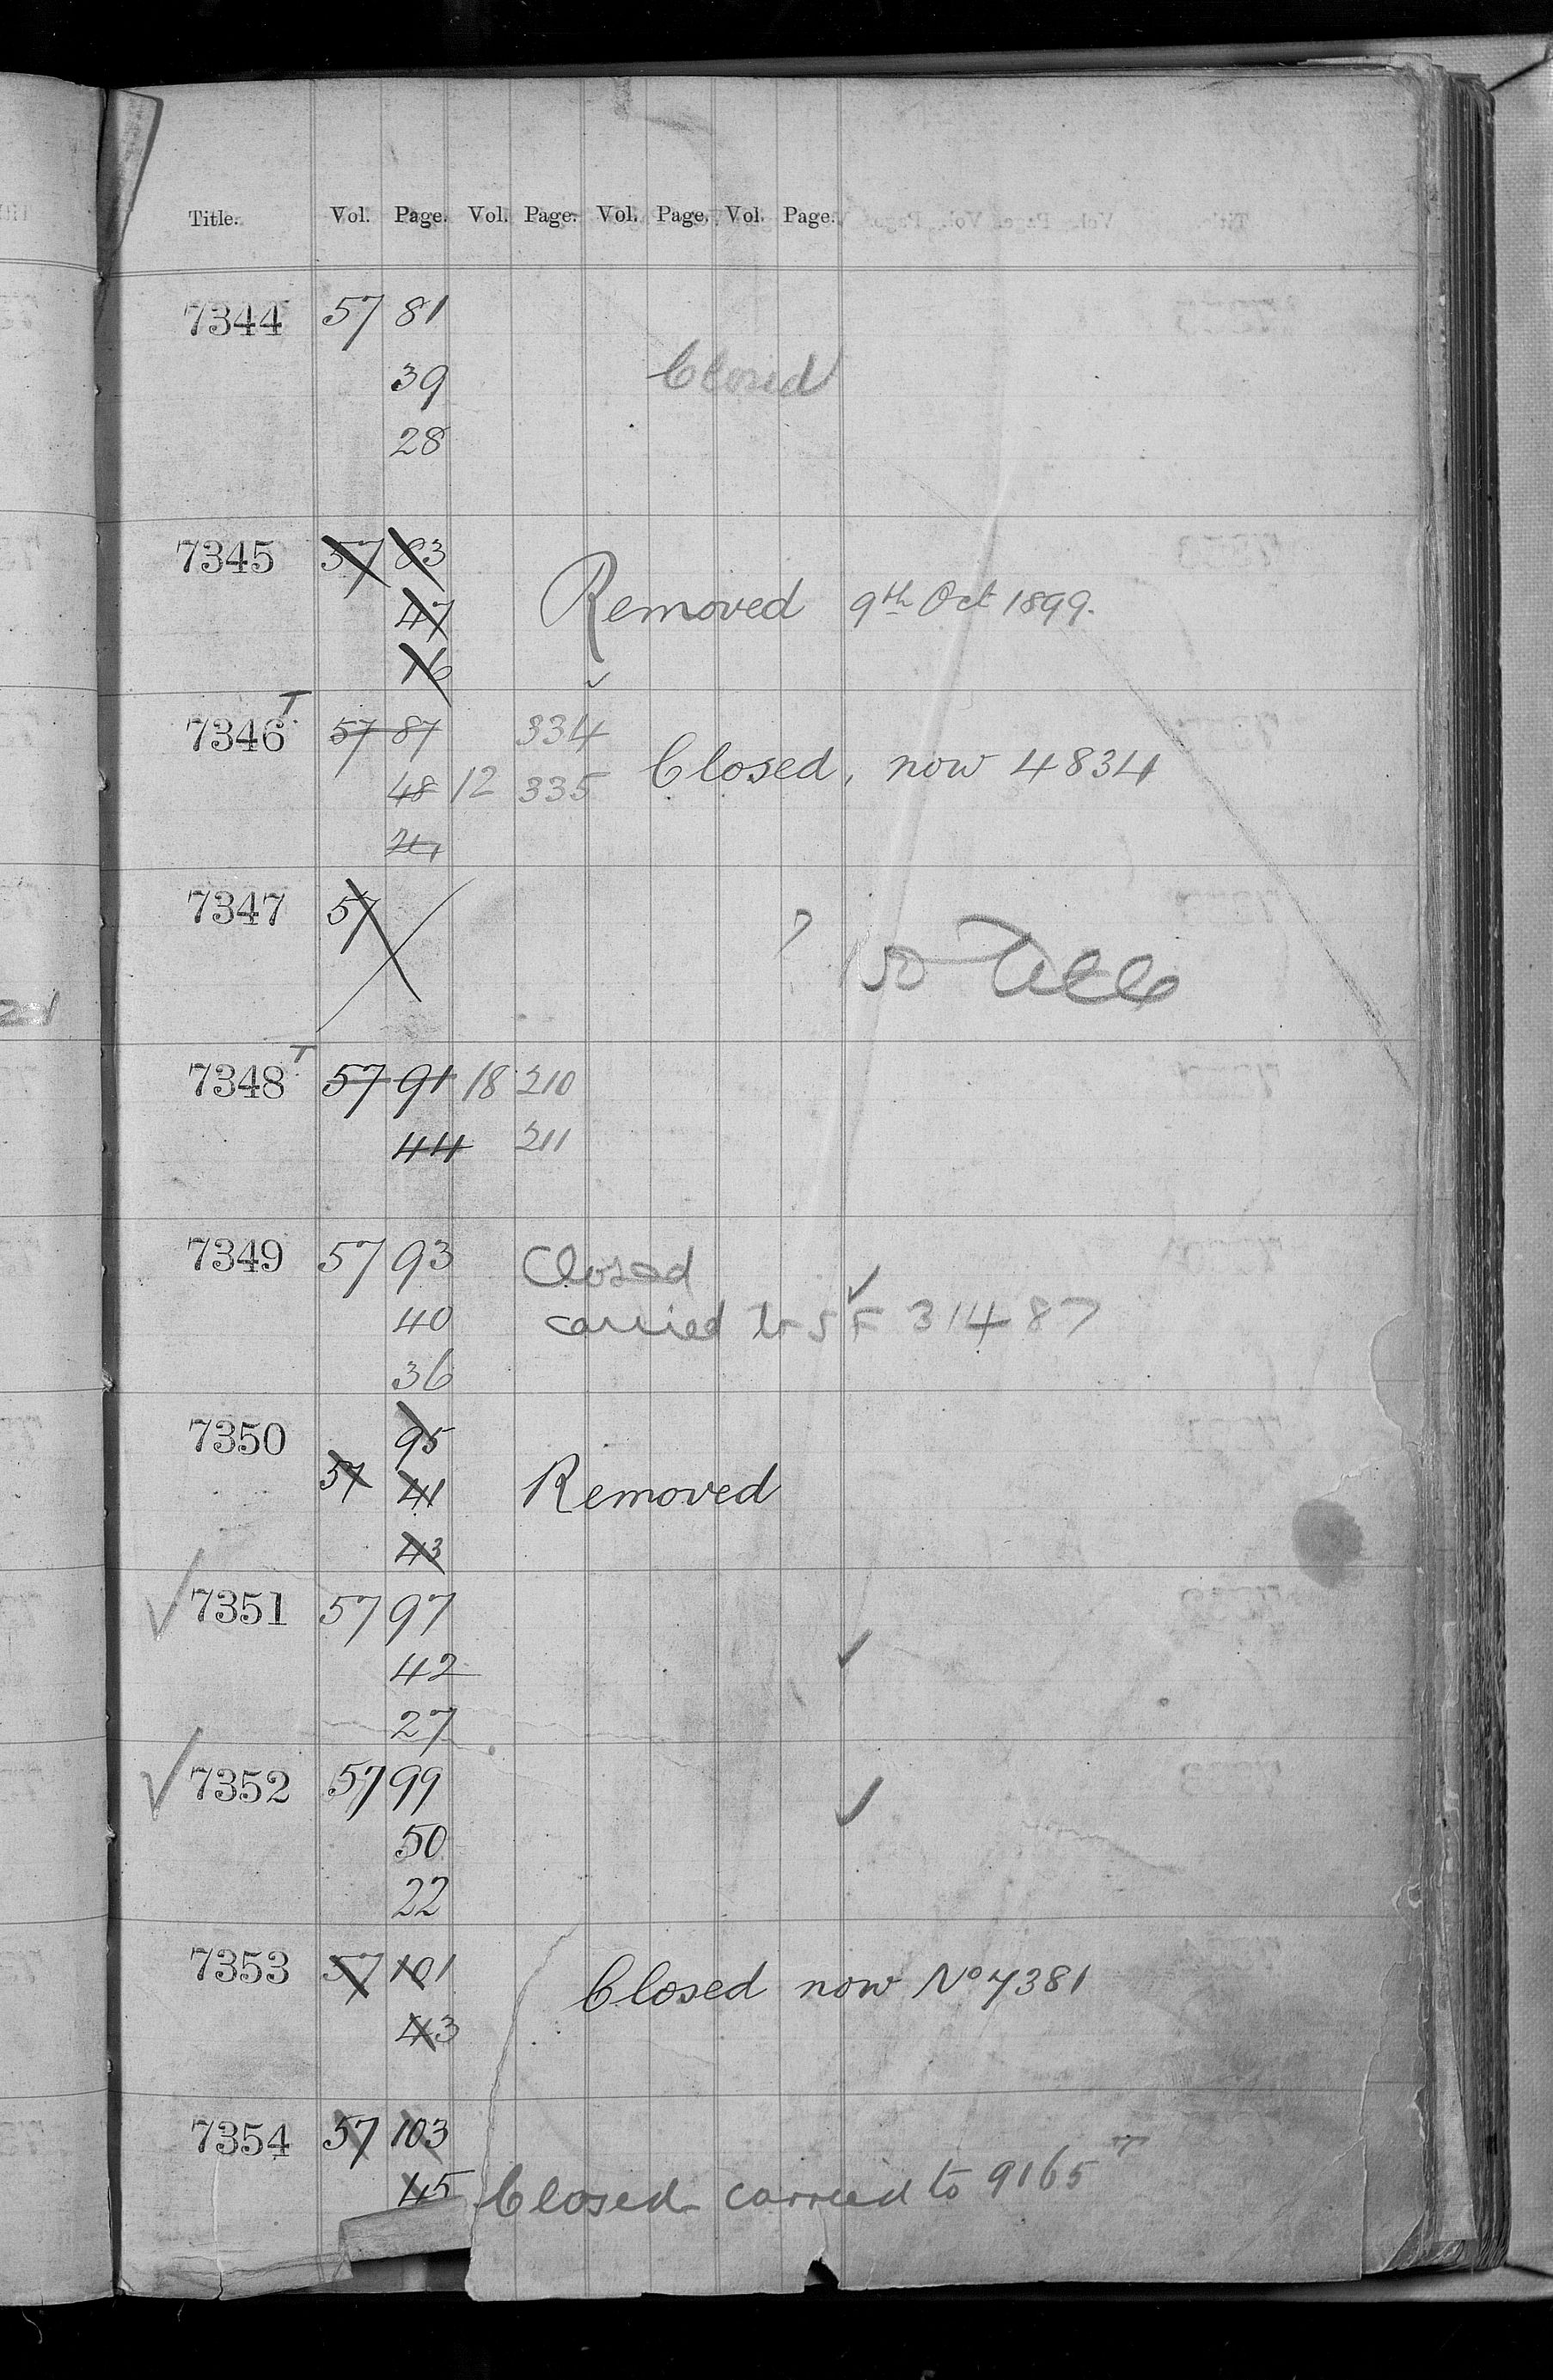 Title. Vol. Page. Vol. Page. Vol. Page. Vol. Page.
7344 57 81
39 Closed
28
7345 57 83
47 Removed 9th Oct 1899.
16
7346 T 57 87 334
48 12 335 Closed, now 4834
7347 57
?
7348 T 57 91 18 210
44 211
7349 57 93 Closed
40 carried to 31487
36
7350 95
57 41 Removed
43
7351 57 97
42
27
7352 57 99
50
22
7353 57 101 Closed now No 7381
43
7354 57 103
45 Closed carried to 9165 T